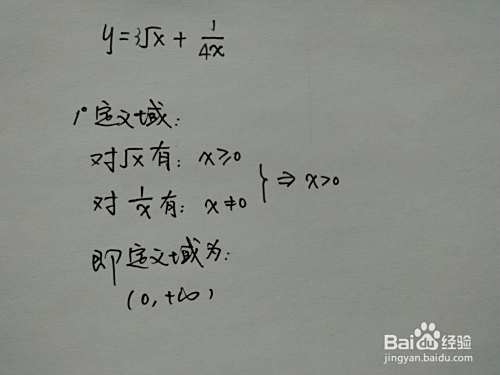 y=3√x + 1/4x
1° 定义域:
对√x 有: x≥0
对 1/x 有: x≠0 } ⇒ x>0
即定义域为:
(0, +∞)
Baidu 经验
jingyan.baidu.com